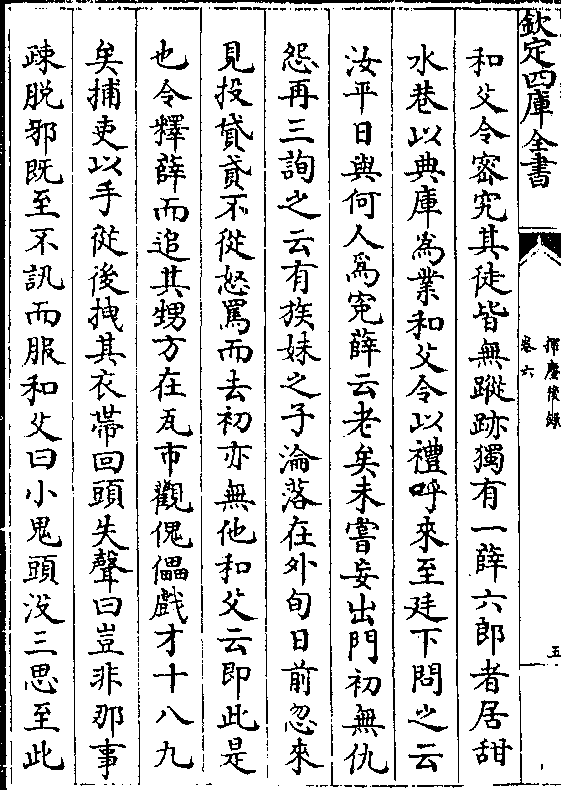 欽定四庫全書
揮麈後錄
卷六
五
和父令密究其徒皆無蹤跡獨有一薛六郎者居甜
水巷以典庫為業和父令以禮呼來至廷下問之云
汝平日與何人爲寃薛云老矣未嘗妄出門初無仇
怨再三詢之云有族妹之子淪落在外旬日前忽來
見投貸貲不從怒罵而去初亦無他和父云即此是
也令釋薛而追其甥方在瓦市觀傀儡戲才十八九
矣捕吏以手從後拽其衣帶回頭失聲曰豈非那事
疎脫邪既至不訊而服和父曰小鬼頭没三思至此